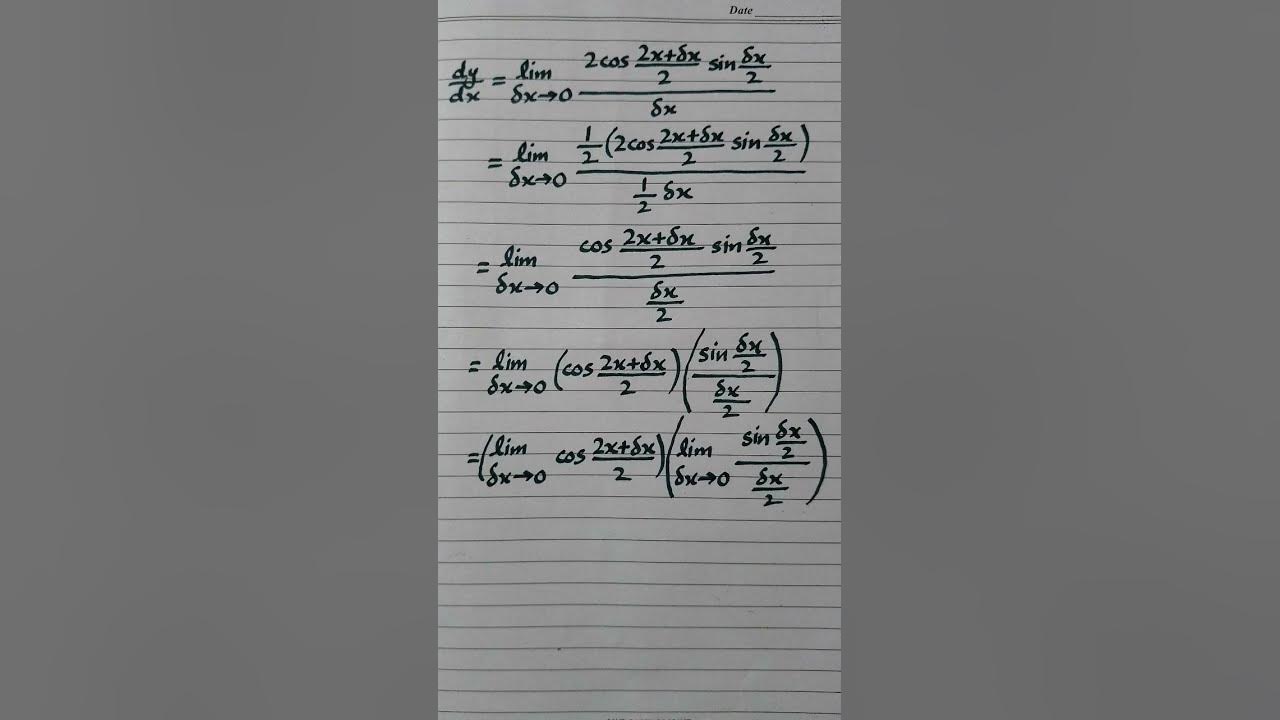 Date
dy/dx = lim δx→0 (2cos (2x+δx)/2 sin δx/2)/δx
= lim δx→0 (1/2 (2cos (2x+δx)/2 sin δx/2))/(1/2 δx)
= lim δx→0 (cos (2x+δx)/2 sin δx/2)/(δx/2)
= lim δx→0 (cos (2x+δx)/2) ((sin δx/2)/(δx/2))
= (lim δx→0 cos (2x+δx)/2) (lim δx→0 (sin δx/2)/(δx/2))